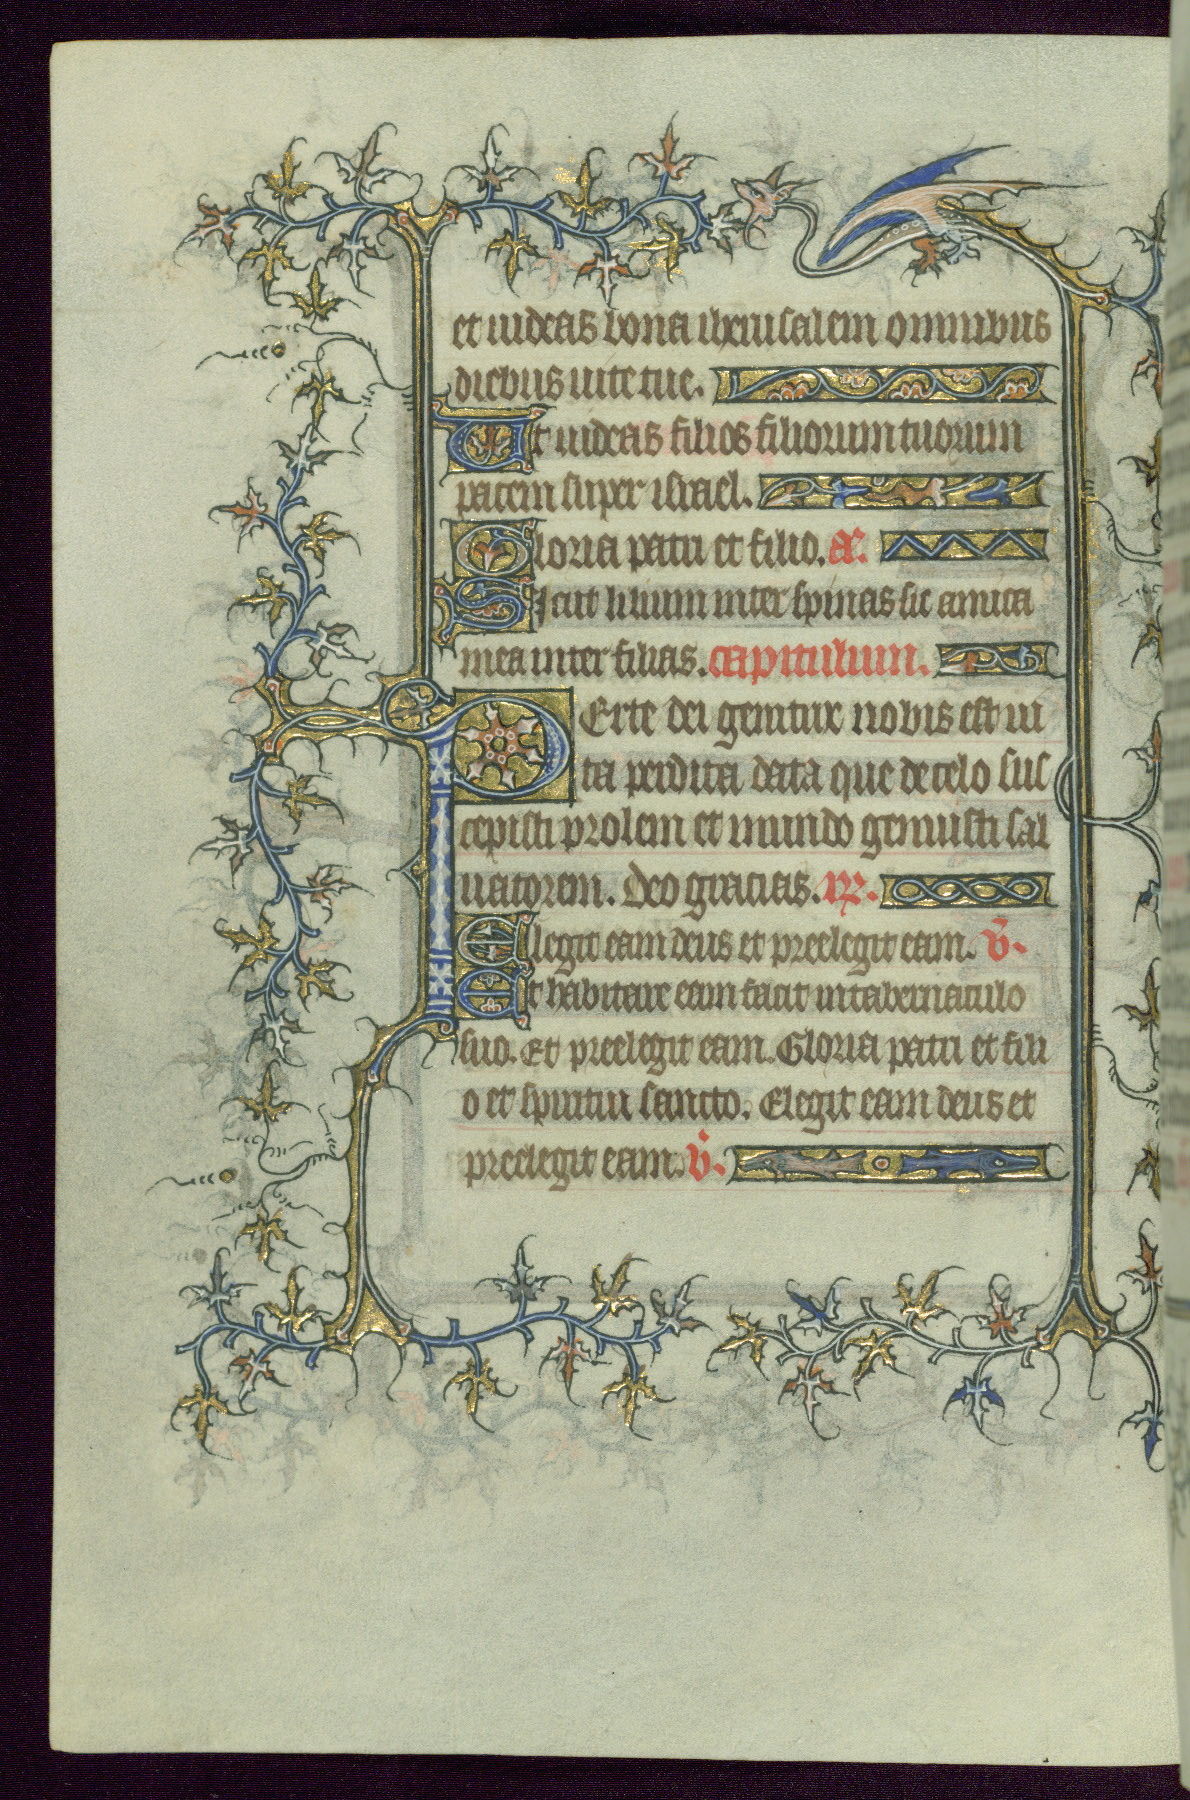 et uideas bona iherusalem omnibus
diebus uite tue.
Et uideas filios filiorum tuorum
pacem super israel.
Gloria patri et filio. a͞.
Sicut lilium inter spinas sic amica
mea inter filias. capitulum.
PErte dei genitrix nobis est ui
ta perdita data que de celo sus
cepisti prolem et mundo genuisti sal
uatorem. Deo gracias. R̸.
Elegit eam deus et preelegit eam. v̄.
Et habitare eam facit in tabernaculo
suo. Et preelegit eam. Gloria patri et fili
o et spiritui sancto. Elegit eam deus et
preelegit eam. v̄.